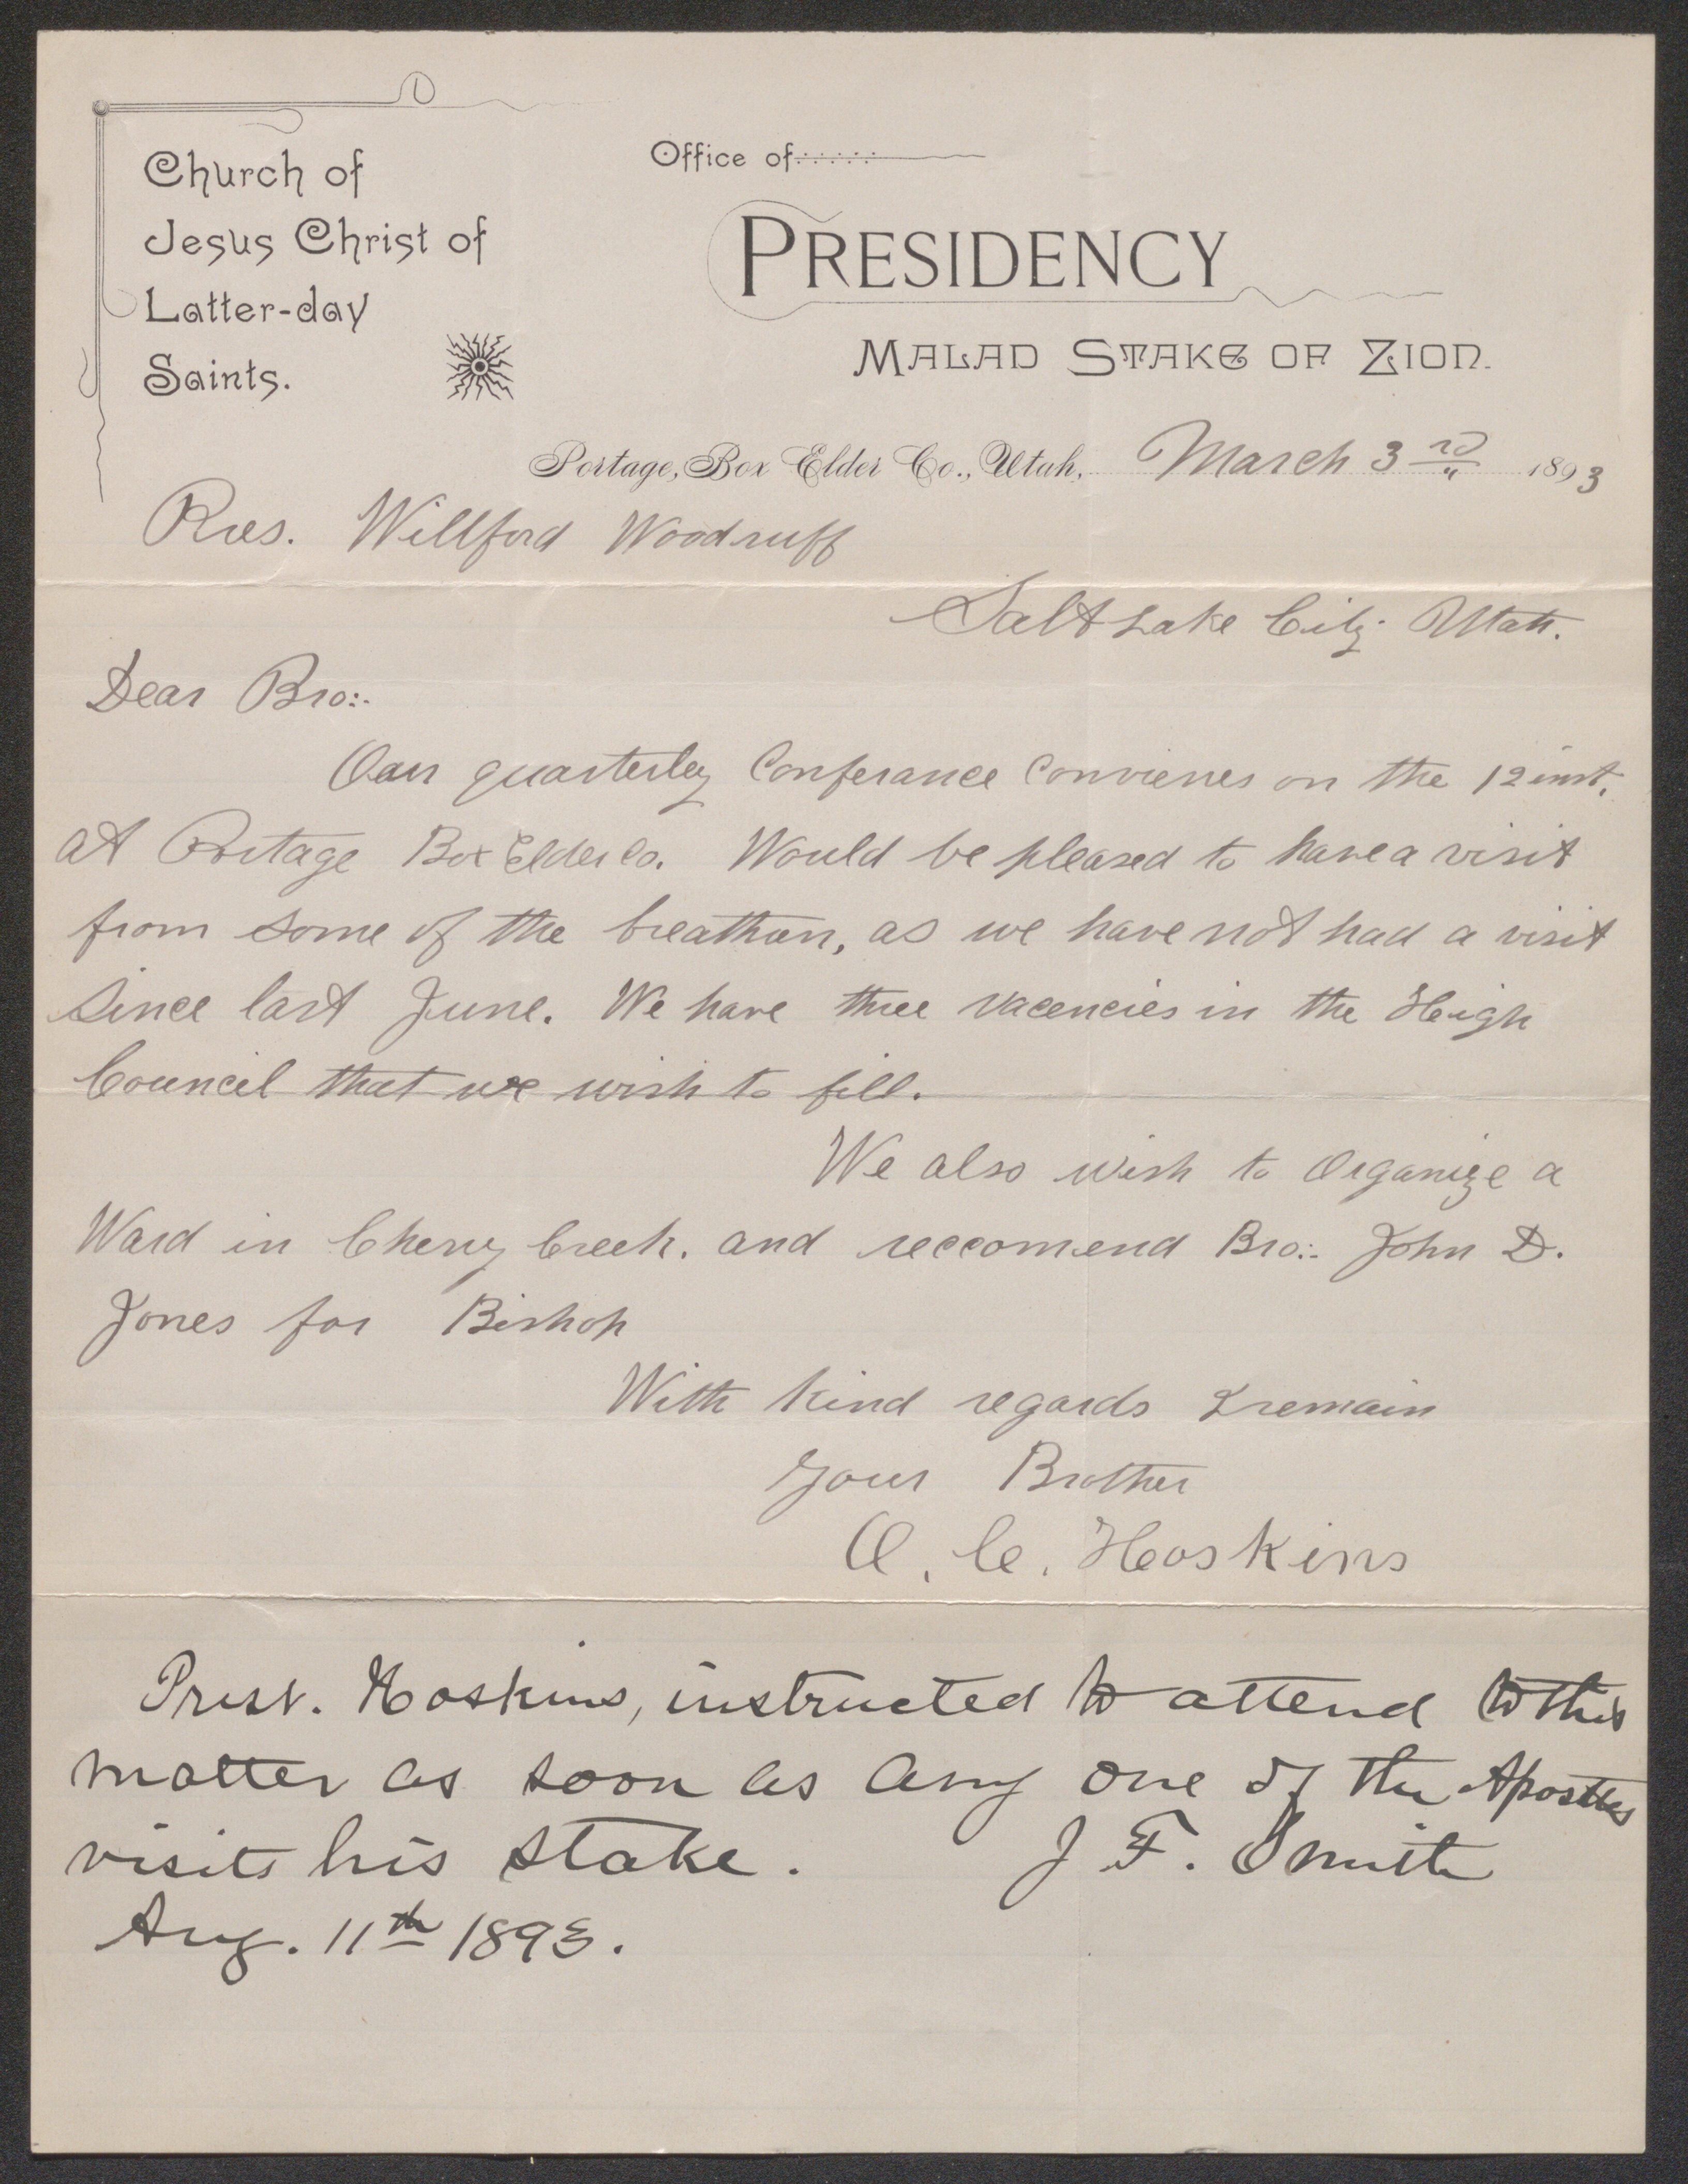 Church of
Jesus Christ of
Latter-day
Saints.
Office of
PRESIDENCY
MALAD STAKE OF ZION.
Portage, Box Elder Co., Utah, March 3rd 1893
Pres. Willford Woodruff
Salt Lake City Utah.
Dear Bro:.
Our quarterley Conferance Convienes on the 12 inst.
at Portage Box Elder Co. Would be pleased to have a visit
from some of the breathren, as we have not had a visit
since last June. We have three vacencies in the Heigh
Council that we wish to fill.
We also wish to Organize a
Ward in Cherry Creek. and reccomend Bro:. John D.
Jones for Bishop
With kind regards I remain
Your Brother
O. C. Hoskins
Prest. Hoskins, instructed to attend to this
matter as soon as any one of the Apostles
visits his Stake. J F. Smith
Aug. 11th 1893.